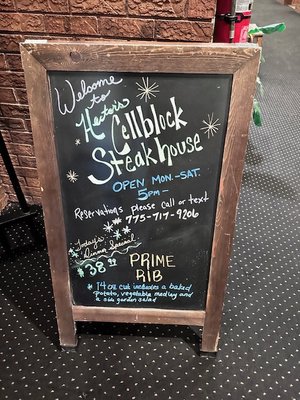 Welcome
to
Hector's
Cellblock
Steakhouse
OPEN MON.-SAT.
5PM-
Reservations please call or text
775-717-9206
Today's
Dinner Special
$38.99
PRIME
RIB
* 14 oz cut includes a baked
potato, vegetable medley and
a side garden salad